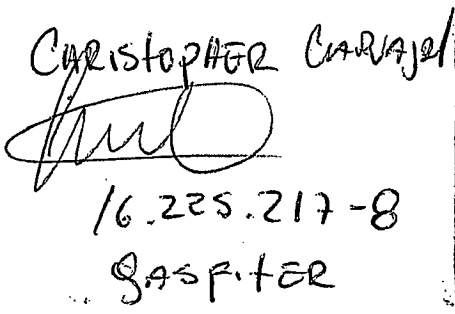 CHRISTOPHER CARVAJAL
16.225.217-8
gASFiTER